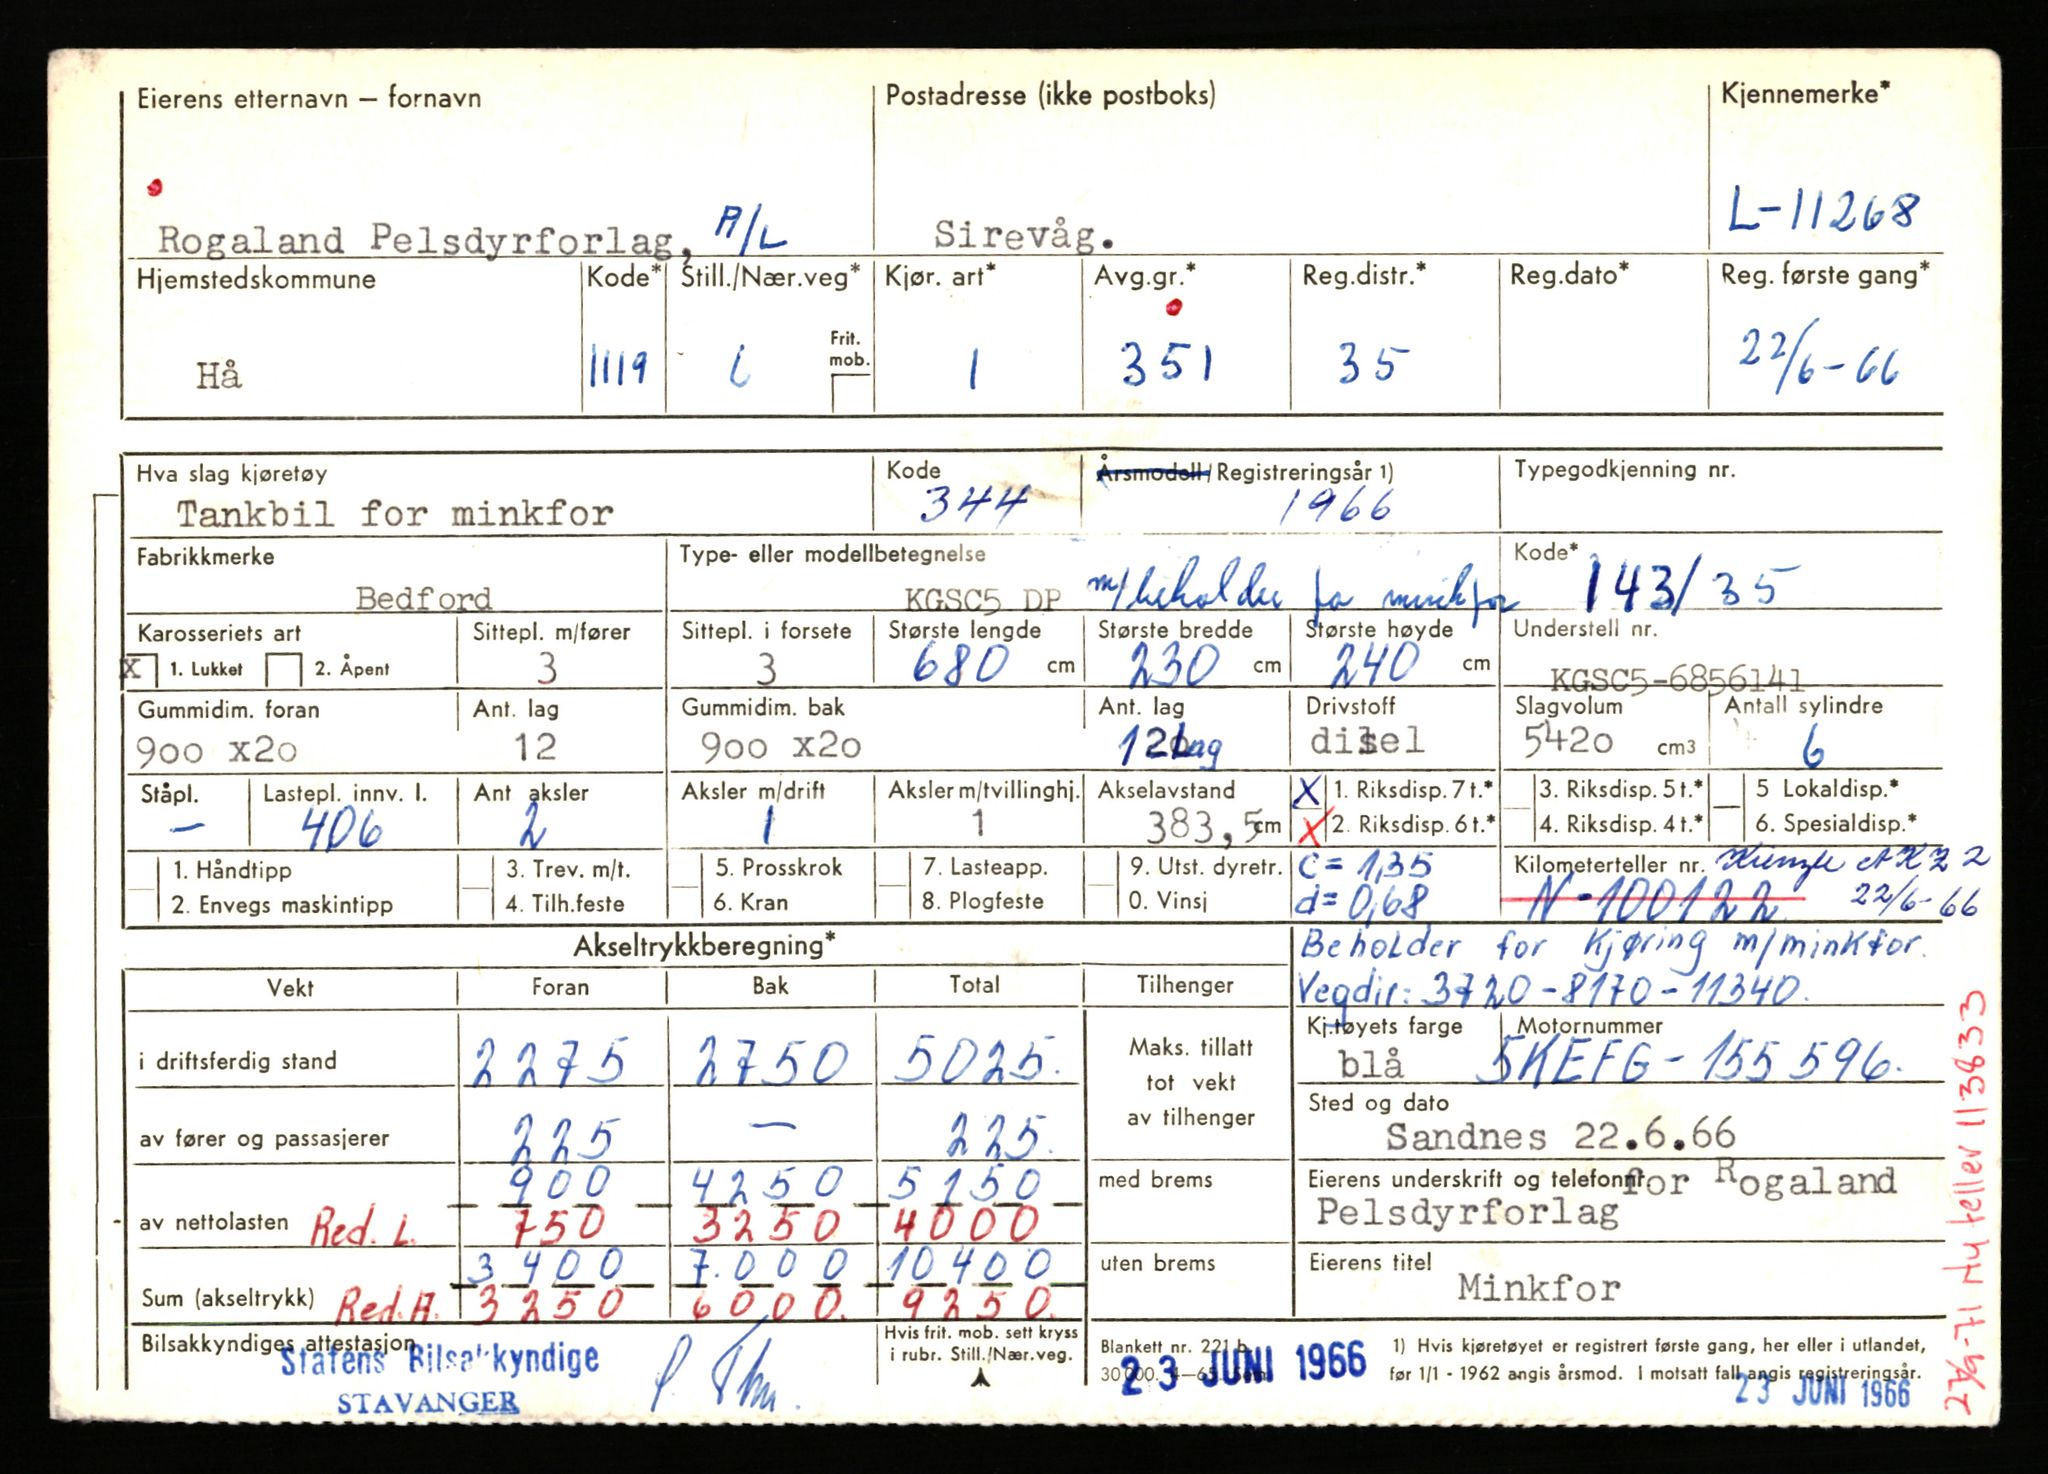 Eierens etternavn — fornavn Postadresse (ikke postboks) Kjennemerke*
Rogaland Pelsdyrforlag, A/L Sirevåg. L-11268
Hjemstedskommune Kode* Still./Nær.veg* Kjør. art* Avg.gr.* Reg.distr.* Reg.dato* Reg. første gang*
Frit. mob.
Hå 1119 6 1 351 35 22/6-66
Hva slag kjøretøy Kode Årsmodell/Registreringsår 1) Typegodkjenning nr.
Tankbil for minkfor 344 1966
Fabrikkmerke Type- eller modellbetegnelse Kode*
Bedford KGSC5 DP m/beholder for minkfor 143/35
Karosseriets art Sittepl. m/fører Sittepl. i forsete Største lengde Største bredde Største høyde Understell nr.
X 1. Lukket 2. Åpent 3 3 680 cm 230 cm 240 cm KGSC5-6856141
Gummidim. foran Ant. lag Gummidim. bak Ant. lag Drivstoff Slagvolum Antall sylindre
900 x20 12 900 x20 12 Lag disel 5420 cm3 6
Ståpl. Lastepl. innv. l. Ant aksler Aksler m/drift Aksler m/tvillinghj. Akselavstand X 1. Riksdisp. 7 t.* 3. Riksdisp. 5 t.* 5 Lokaldisp.*
— 406 2 1 1 383,5 cm X 2. Riksdisp. 6 t.* 4. Riksdisp. 4 t.* 6. Spesialdisp.*
1. Håndtipp 3. Trev. m/t. 5. Prosskrok 7. Lasteapp. 9. Utst. dyretr. C = 1,35 Kilometerteller nr. Kienzle
2. Envegs maskintipp 4. Tilh.feste 6. Kran 8. Plogfeste 0. Vinsj d = 0,68 N-100122 22/6-66
Akseltrykkberegning* Beholder for Kjøring m/minkfor.
Vekt Foran Bak Total Tilhenger Vegdir: 3720-8170-11340.
Kj.tøyets farge Motornummer
i driftsferdig stand 2275 2750 5025. Maks. tillatt tot vekt av tilhenger blå 5KEFG-155596.
Sted og dato
av fører og passasjerer 225 — 225. Sandnes 22.6.66
900 4250 5150 med brems Eierens underskrift og telefonnr for Rogaland
av nettolasten Red. L. 750 3250 4000 Pelsdyrforlag
3400 7.000 10400 uten brems Eierens titel
Sum (akseltrykk) Red. A. 3250 6000. 9250. Minkfor
Bilsakkyndiges attestasjon Hvis frit. mob. sett kryss i rubr. Still./Nær.veg. Blankett nr. 221 b 1) Hvis kjøretøyet er registrert første gang, her eller i utlandet,
Statens Bilsakkyndige 30 000. 4—65. 23 JUNI 1966 før 1/1 - 1962 angis årsmod. I motsatt fall angis registreringsår.
STAVANGER 23 JUNI 1966
27/9-71 Ny teller 113833